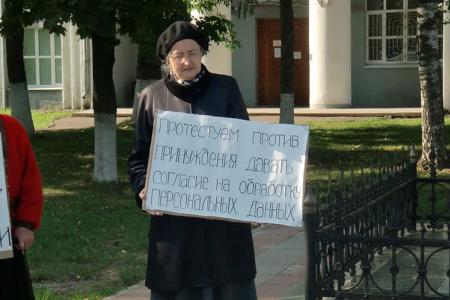 Протестуем против
принуждения давать
согласие на обработку
персональных данных
и